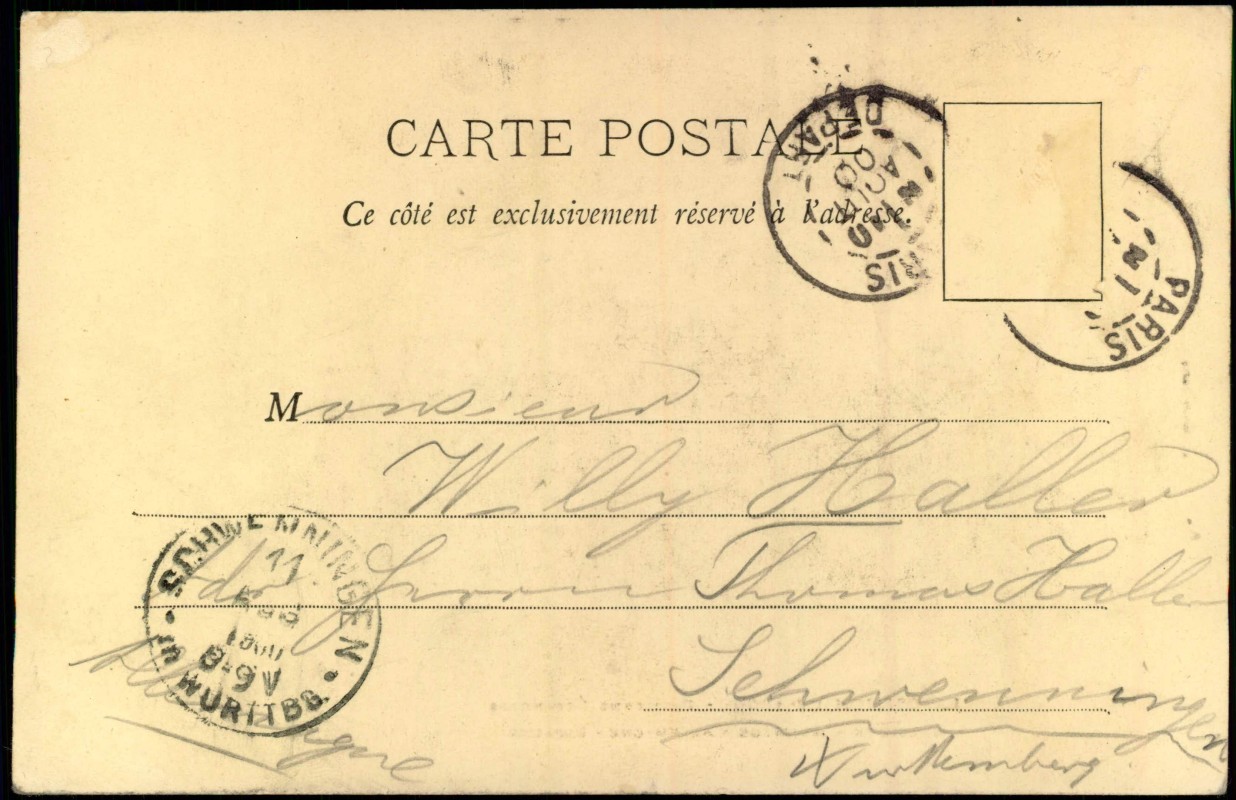 CARTE POSTALE
Ce côté est exclusivement réservé à l'adresse.
PARIS
DÉPART
10
AOUT
00
PARIS
Monsieur
Willy Haller
Herrn Thomas Haller
Schwenningen
Württemberg
SCHWENNINGEN
11
1900
8-9 V
WÜRTTBG.